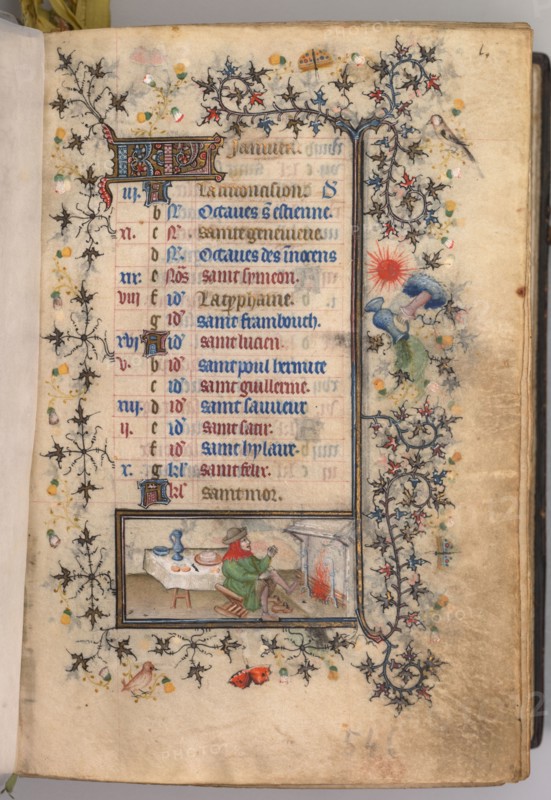 KL Januier.
iij. A La circoncision D
b N Octaues s estienne.
xi. c N sainte geneuieue.
d N Octaues des inocens
xix e Nōs saint symeon.
viii f id La typhaine.
g id saint frambouch.
xvi A id saint lucien.
v. b id saint poul hermite
c id saint guillerme.
xiii. d id saint sauueur
ii. e id saint satir.
f id saint hylaire.
x. g kl saint felix.
A kl saint mor.